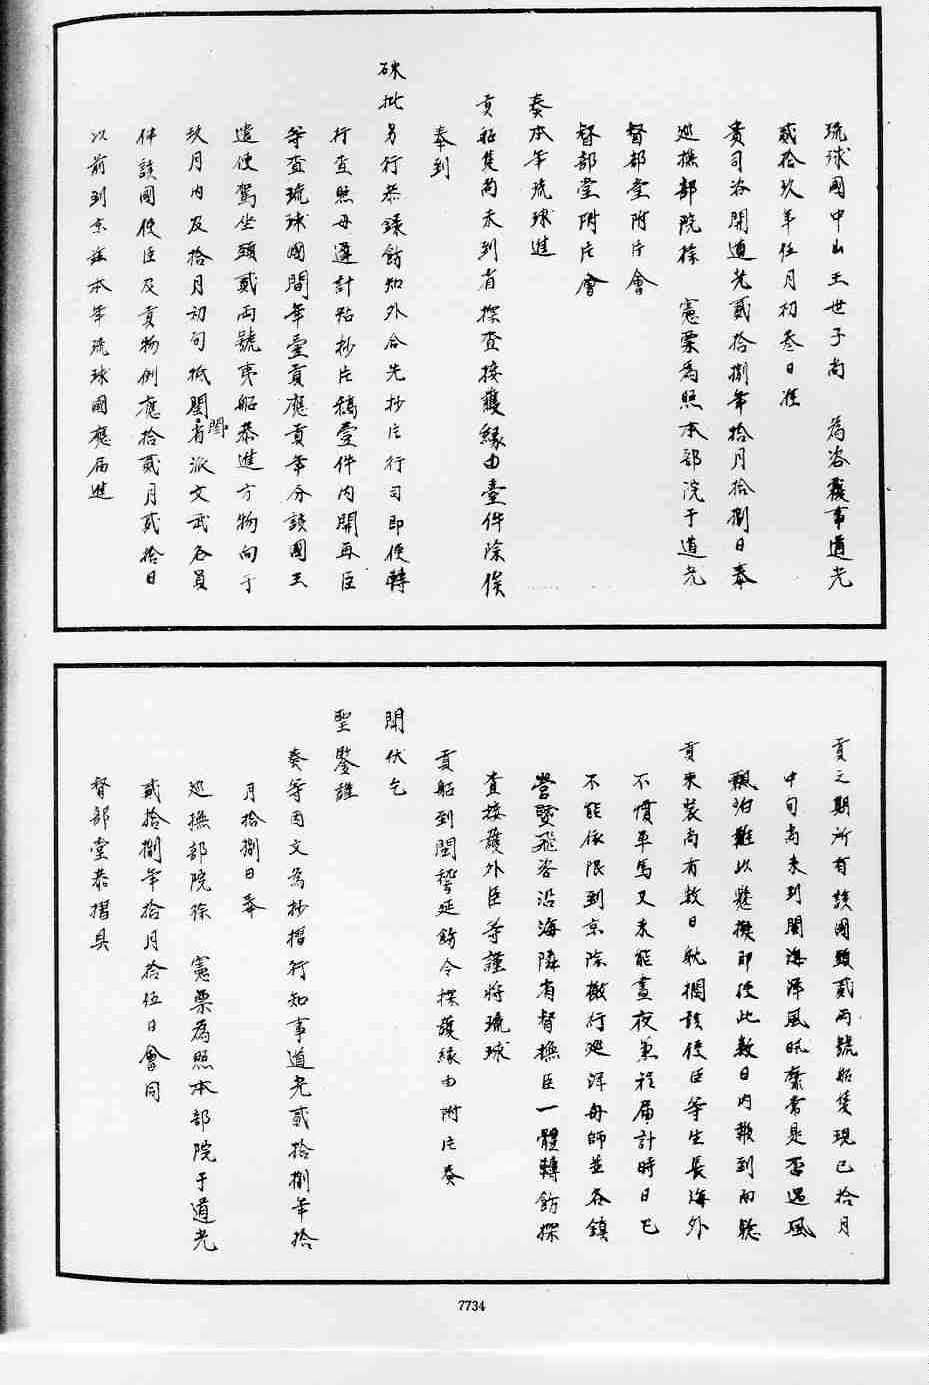 琉球國中山王世子尚　為咨覆事道光
貳拾玖年伍月初叁日准
貴司咨開道光貳拾捌年拾月拾捌日奉
巡撫部院徐　憲票為照本部院于道光
督部堂附片會
督部堂附片會
奏本年琉球進
貢船隻尚未到省探查接護緣由壹件除俟
奉到
硃批另行恭錄飭知外合先抄片行司即便轉
行查照毋違計粘抄片稿壹件內開再臣
等查琉球國間年壹貢應貢年分該國王
遣使駕坐頭貳兩號夷船恭進方物向于
玖月內及拾月初旬抵閩省派文武各員
閩
伴該國使臣及貢物例應拾貳月貳拾日
以前到京茲本年琉球國應屆進
貢之期所有該國頭貳兩號船隻現已拾月
中旬尚未到閩海洋風汛靡常是否遇風
飄泊難以懸擬即使此數日內報到而驗
貢束裝尚有數日耽擱該使臣等生長海外
不慣車馬又未能晝夜兼程屆計時日已
不能依限到京除檄行巡洋舟師並各鎮
營暨飛咨沿海隣省督撫臣一體轉飭探
查接護外臣等謹將琉球
貢船到閩稽延飭令探護緣由附片奏
聞伏乞
聖鑒謹
奏等因文為抄摺行知事道光貳拾捌年拾
月拾捌日奉
巡撫部院徐　憲票為照本部院于道光
貳拾捌年拾月拾伍日會同
督部堂恭摺具
7734